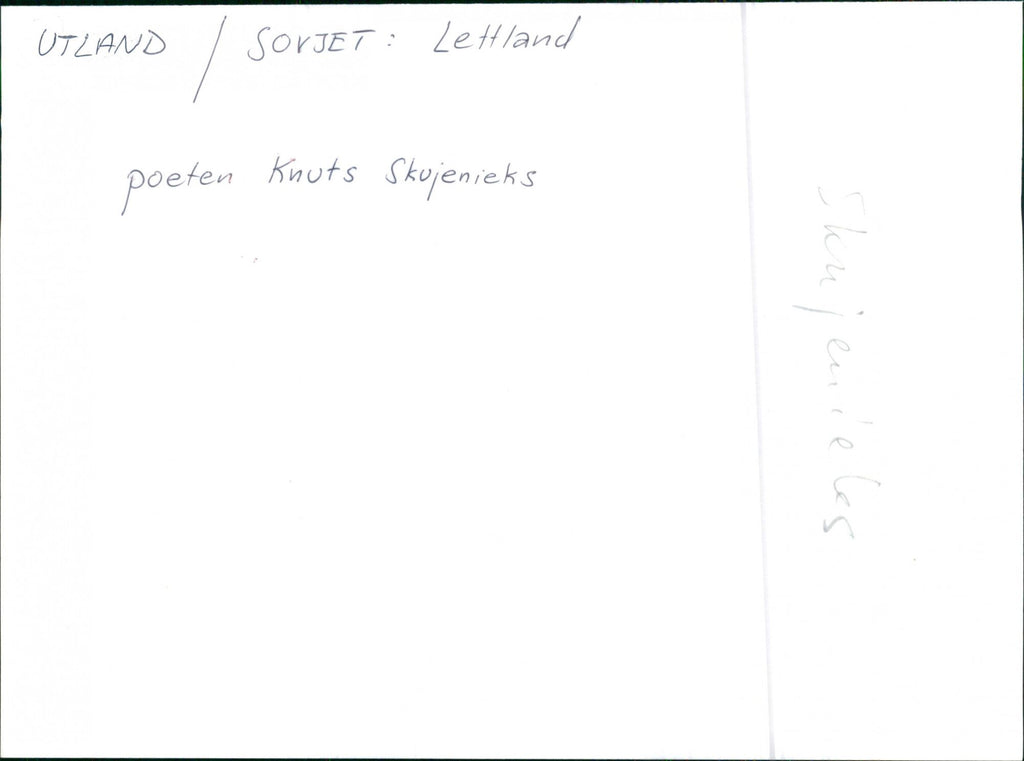 UTLAND / SOVJET: Lettland
poeten Knuts Skujenieks
Skujenieks